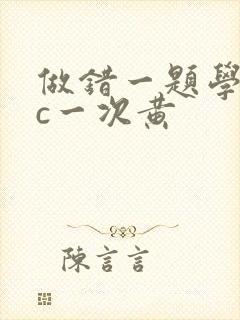 做錯一題學
c一次黃
陳言言